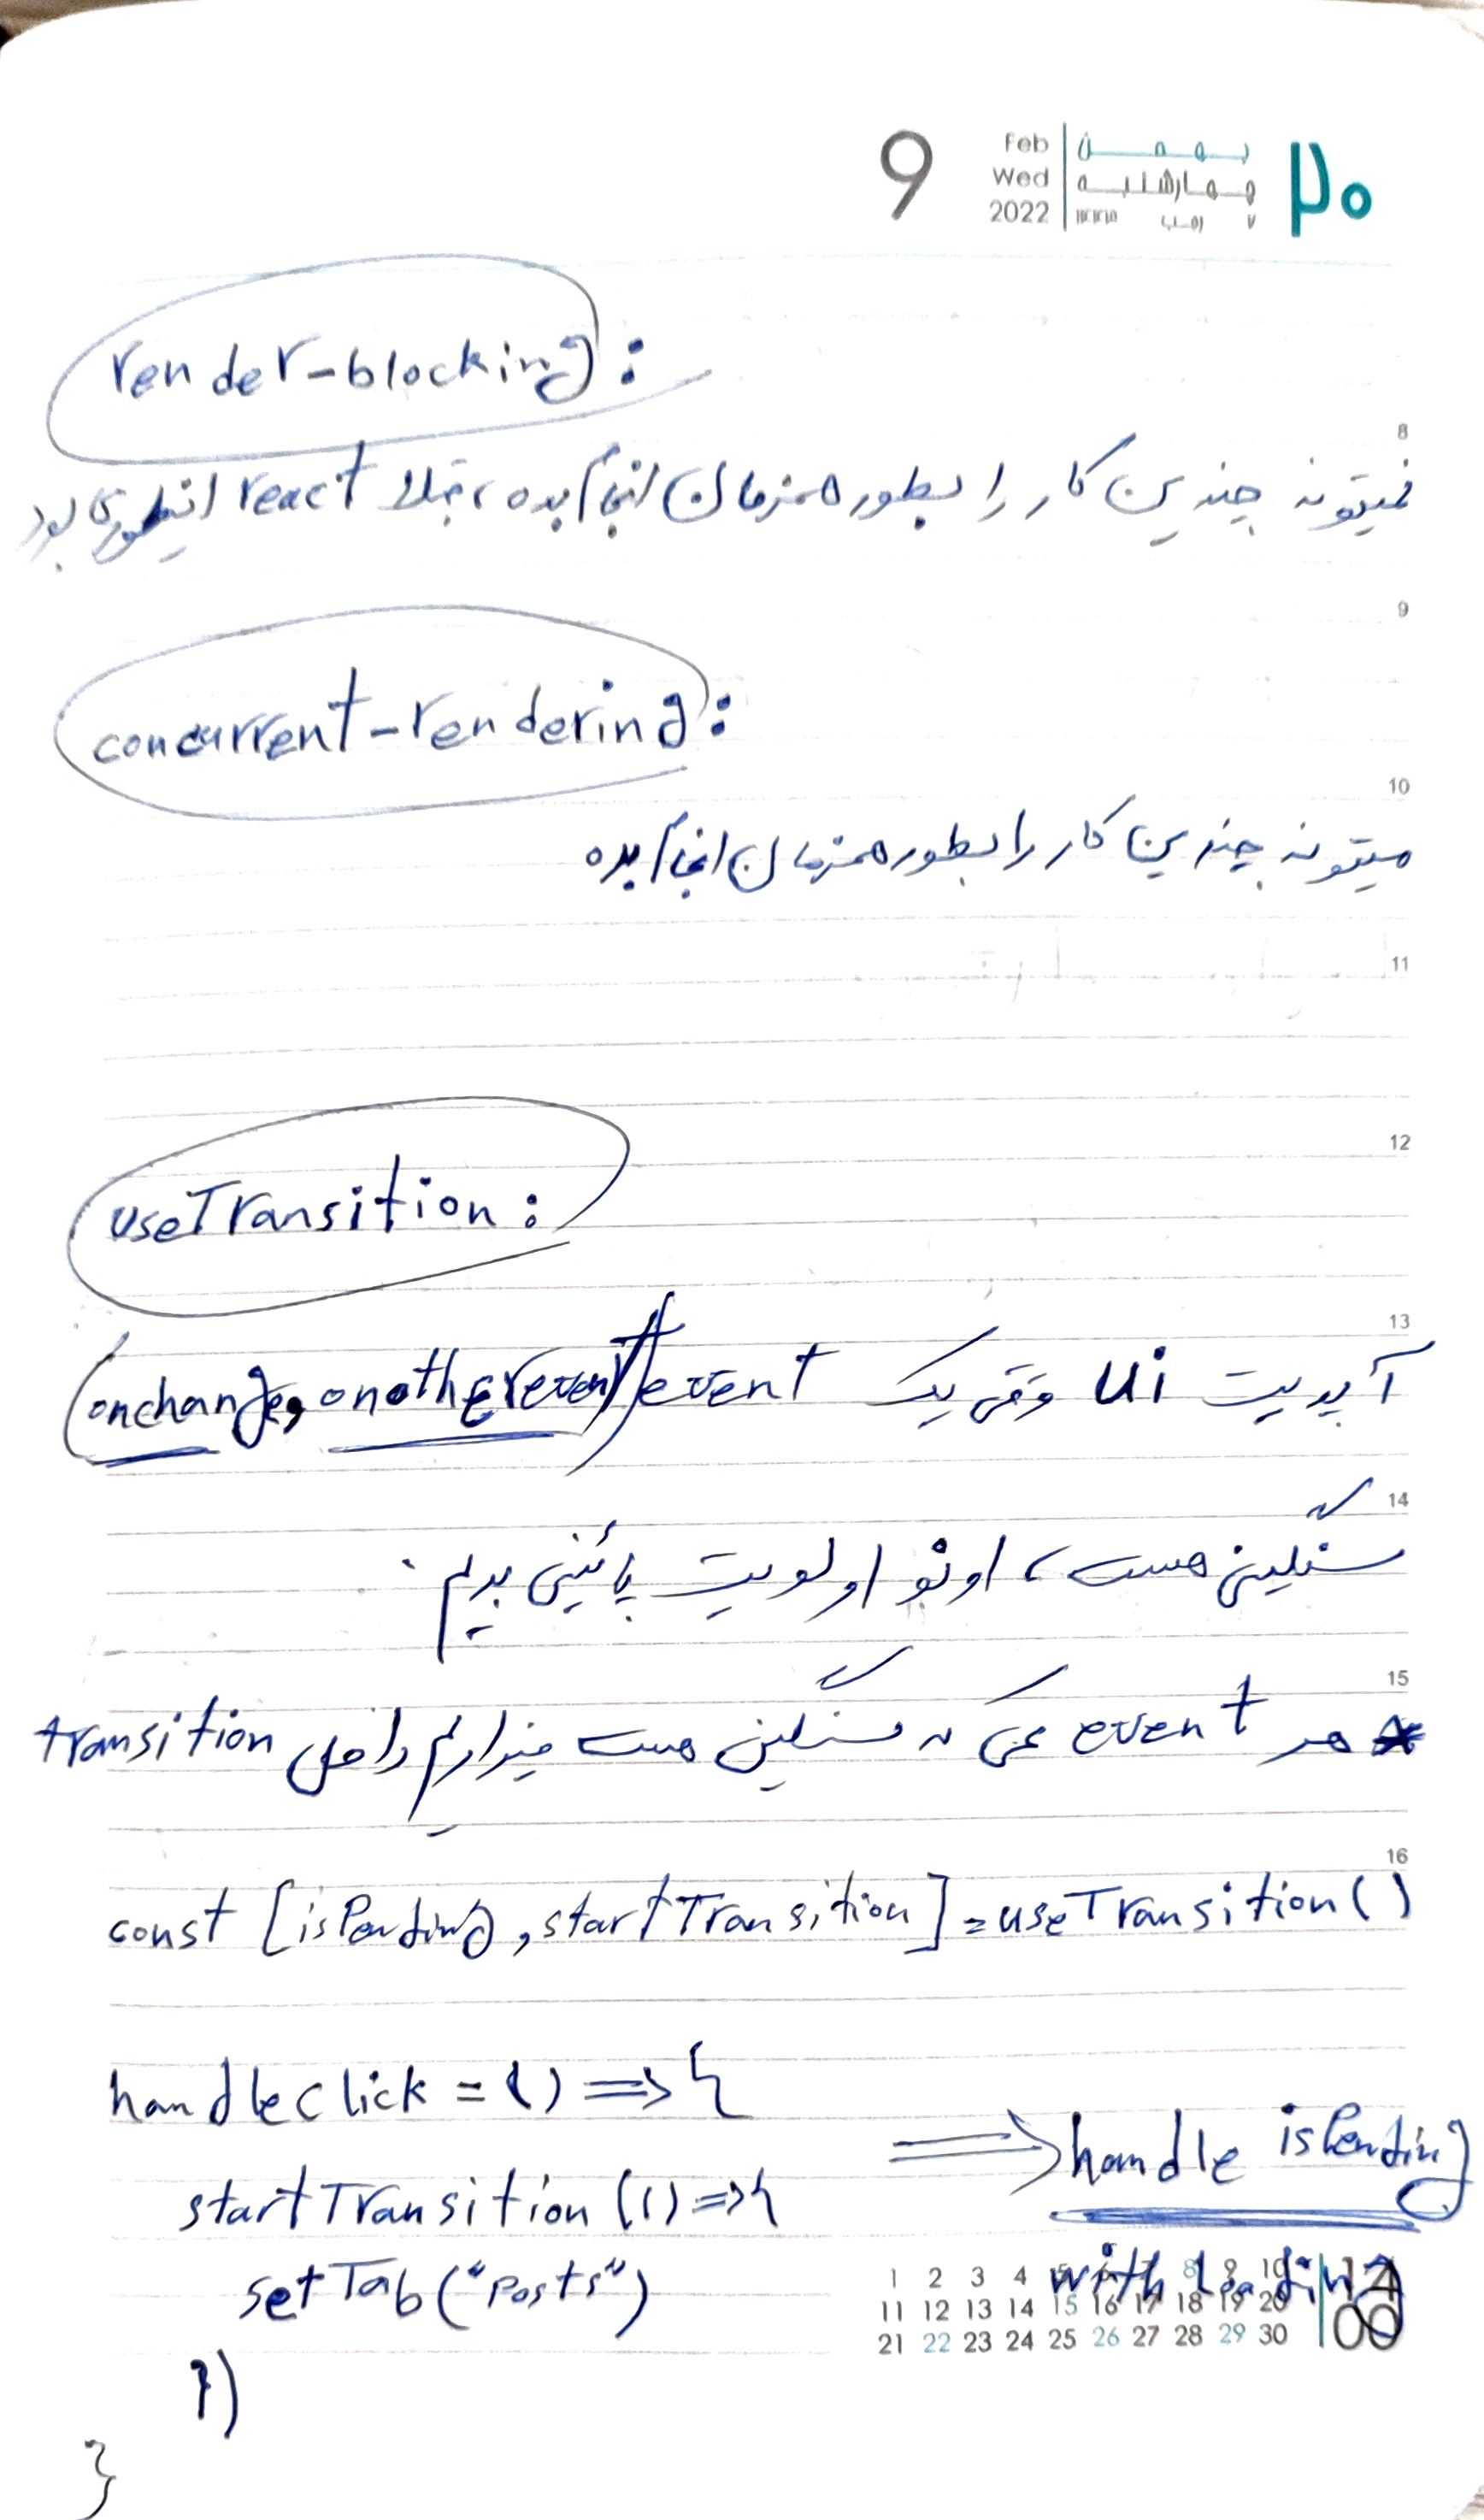 9
Feb
Wed
2022
بهمن
چهارشنبه
۷ رجب ۱۴۴۳
۲۰
render-blocking:
8
نمیتونه چندین کار را بطور همزمان انجام بده، قبلا react اینطوری بود
9
concurrent-rendering:
10
میتونه چندین کار را بطور همزمان انجام بده
11
12
useTransition:
13
آپدیت ui وقتی یک event (onchange, onotherevent)
14
سنگین هست، اونو اولویت پائینی بدیم.
15
* هر event ی که سنگین هست میذاریم داخل transition
16
const [isPending, startTransition] = useTransition()
handleClick = () => {
startTransition(() => {
setTab("Posts")
})
}
=> handle isPending
with loading
1 2 3 4 5 6 7 8 9 10
11 12 13 14 15 16 17 18 19 20
21 22 23 24 25 26 27 28 29 30
14
00